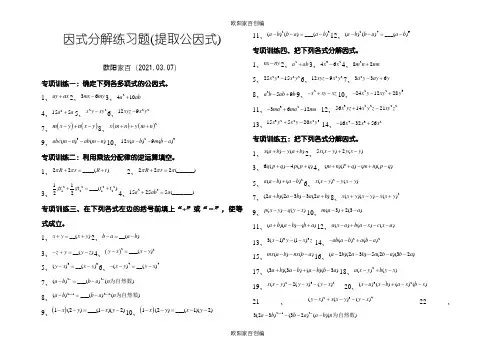 欧阳家百创编
因式分解练习题(提取公因式)
欧阳家百(2021.03.07)
专项训练一:确定下列各多项式的公因式。
1、ay+ax 2、3mx-6my 3、4a²+10ab
4、15a²+5a 5、x²y-xy² 6、12xyz-9x²y²
7、m(x-y)+n(x-y) 8、x(m+n)+y(m+n)²
9、abc(m-n)³-ab(m-n) 10、12x(a-b)²-9m(b-a)³
专项训练二:利用乘法分配律的逆运算填空。
1、2πR+2πr=___(R+r) 2、2πR+2πr=2π(_____)
3、½gt₁²+½gt₂²=___(t₁²+t₂²) 4、15a²+25ab²=5a(_____)
专项训练三、在下列各式左边的括号前填上“+”或“-”,使等
式成立。
1、x+y=__(x+y) 2、b-a=__(a-b)
3、-z+y=__(y-z) 4、(y-x)²=___(x-y)²
5、(y-x)³=__(x-y)³ 6、-(x-y)⁴=__(y-x)⁴
7、(a-b)²ⁿ=___(b-a)²ⁿ(n为自然数)
8、(a-b)²ⁿ⁺¹=___(b-a)²ⁿ⁺¹(n为自然数)
9、(1-x)(2-y)=___(1-x)(y-2) 10、(1-x)(2-y)=___(x-1)(y-2)
11、(a-b)²(b-a)=___(a-b)³ 12、(a-b)²(b-a)⁴=___(a-b)⁶
专项训练四、把下列各式分解因式。
1、nx-ny 2、a²+ab 3、4x³-6x² 4、8m²n+2mn
5、25x²y³-15x²y² 6、12xyz-9x²y² 7、3a²y-3ay+6y
8、a²b-5ab+9b 9、-x²+xy-xz 10、-24x²y-12xy²+28y³
11、-3ma³+6ma²-12ma 12、56x³yz+14x²y²z-21xy²z²
13、15x³y²+5x²y-20x²y³ 14、-16x⁴-32x³+56x²
专项训练五:把下列各式分解因式。
1、x(a+b)-y(a+b) 2、5x(x-y)+2y(x-y)
3、6q(p+q)-4p(p+q) 4、(m+n)(p+q)-(m+n)(p-q)
5、a(a-b)+(a-b)² 6、x(x-y)²-y(x-y)
7、(2a+b)(2a-3b)-3a(2a+b) 8、x(x+y)(x-y)-x(x+y)²
9、p(x-y)-q(y-x) 10、m(a-3)+2(3-a)
11、(a+b)(a-b)-(b+a) 12、a(x-a)+b(a-x)-c(x-a)
13、3(x-1)³y-(1-x)³z 14、-ab(a-b)²+a(b-a)²
15、mx(a-b)-nx(b-a) 16、(a-2b)(2a-3b)-5a(2b-a)(3b-2a)
17、(3a+b)(3a-b)+(a-b)(b-3a) 18、a(x-y)²+b(y-x)
19、x(x-y)²-2(y-x)³-(y-x)² 20、(x-a)³(x-b)+(a-x)²(b-x)
21、(y-x)²+x(x-y)³-(y-x)⁴ 22、
3(2a-3b)²ⁿ⁺¹-(3b-2a)²ⁿ(a-b)(n为自然数)
欧阳家百创编